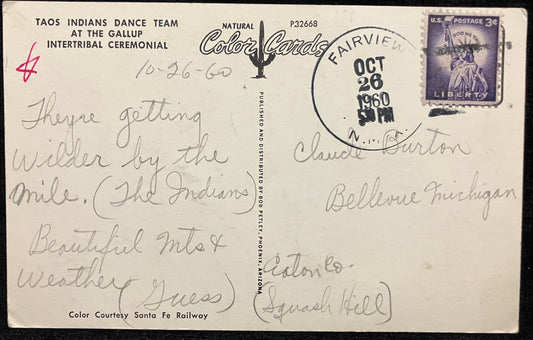 TAOS INDIANS DANCE TEAM
AT THE GALLUP
INTERTRIBAL CEREMONIAL
NATURAL P32668
Color Cards
10-26-60
Theyre getting
Wilder by the
Mile. (The Indians)
Beautiful Mts &
Weather
(Guess)
Color Courtesy Santa Fe Railway
PUBLISHED AND DISTRIBUTED BY BOB PETLEY, PHOENIX, ARIZONA
FAIRVIEW
OCT
26
1960
PM
N.
U.S. POSTAGE 3¢
IN GOD WE TRUST
LIBERTY
Claude Burton
Bellevue Michigan
Eaton Co.
(Squash Hill)